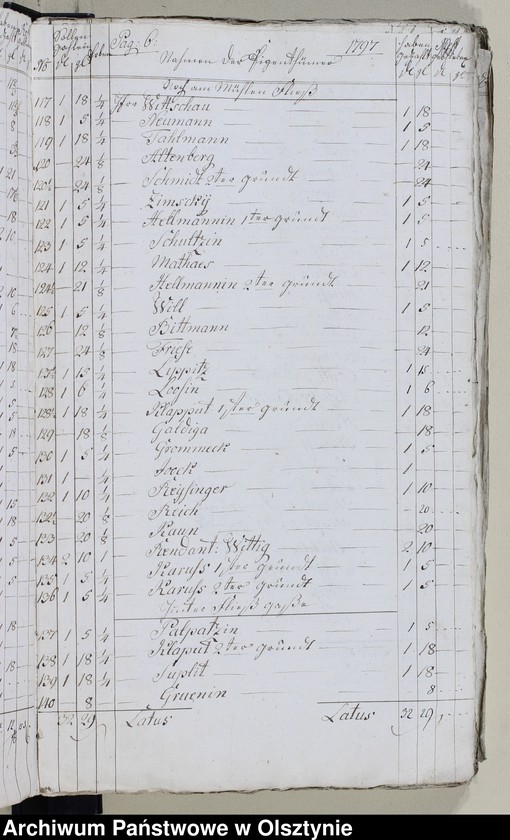 Pag: 6. 1797
No Nahmen der Eigenthümer
Noch am Mühlen Fließ
117 1 18 1/4 Wittschau 1 18
118 1 5 1/4 Neumann 1 5
119 1 18 1/4 Fahlmann 1 18
120 24 1/8 Altenberg 24
120½ 24 1/8 Schmidt 2ter grundt 24
121 1 5 1/4 Zimsckÿ 1 5
122 1 5 1/4 Hellmannin 1ster grundt 1 5
123 1 5 1/4 Schultzin 1 5
124 1 12 1/4 Mathaes 1 12
124½ 21 1/8 Hellmannin 2ter grundt 21
125 1 5 1/4 Will 1 5
126 12 1/8 Bittmann 12
127 24 1/8 Friese 24
127½ 1 15 1/4 Lippitz 1 15
128 1 6 1/4 Loosin 1 6
128½ 1 18 1/4 Klapput 1ster grundt 1 18
129 18 1/8 Galdiga 18
130 1 5 1/4 Grommeck 1 5
131 1 1/4 1
132 1 10 1/4 Reysinger 1 10
132½ 20 1/8 Reich 20
133 20 1/8 Kaun 20
134 2 10 1 Rendant: Wittig 2 10
135 1 5 1/4 Karuss 1ster grundt 1 5
136 1 5 1/4 Karuss 2ter grundt 1 5
Hinter Fließ gaße
137 1 5 1/4 Palpatzin 1 5
138 1 18 1/4 Klaput 2ter grundt 1 18
139 1 18 1/4 Suplit 1 18
140 8 Gruenin 8
32 29 Latus Latus 32 29
Archiwum Państwowe w Olsztynie